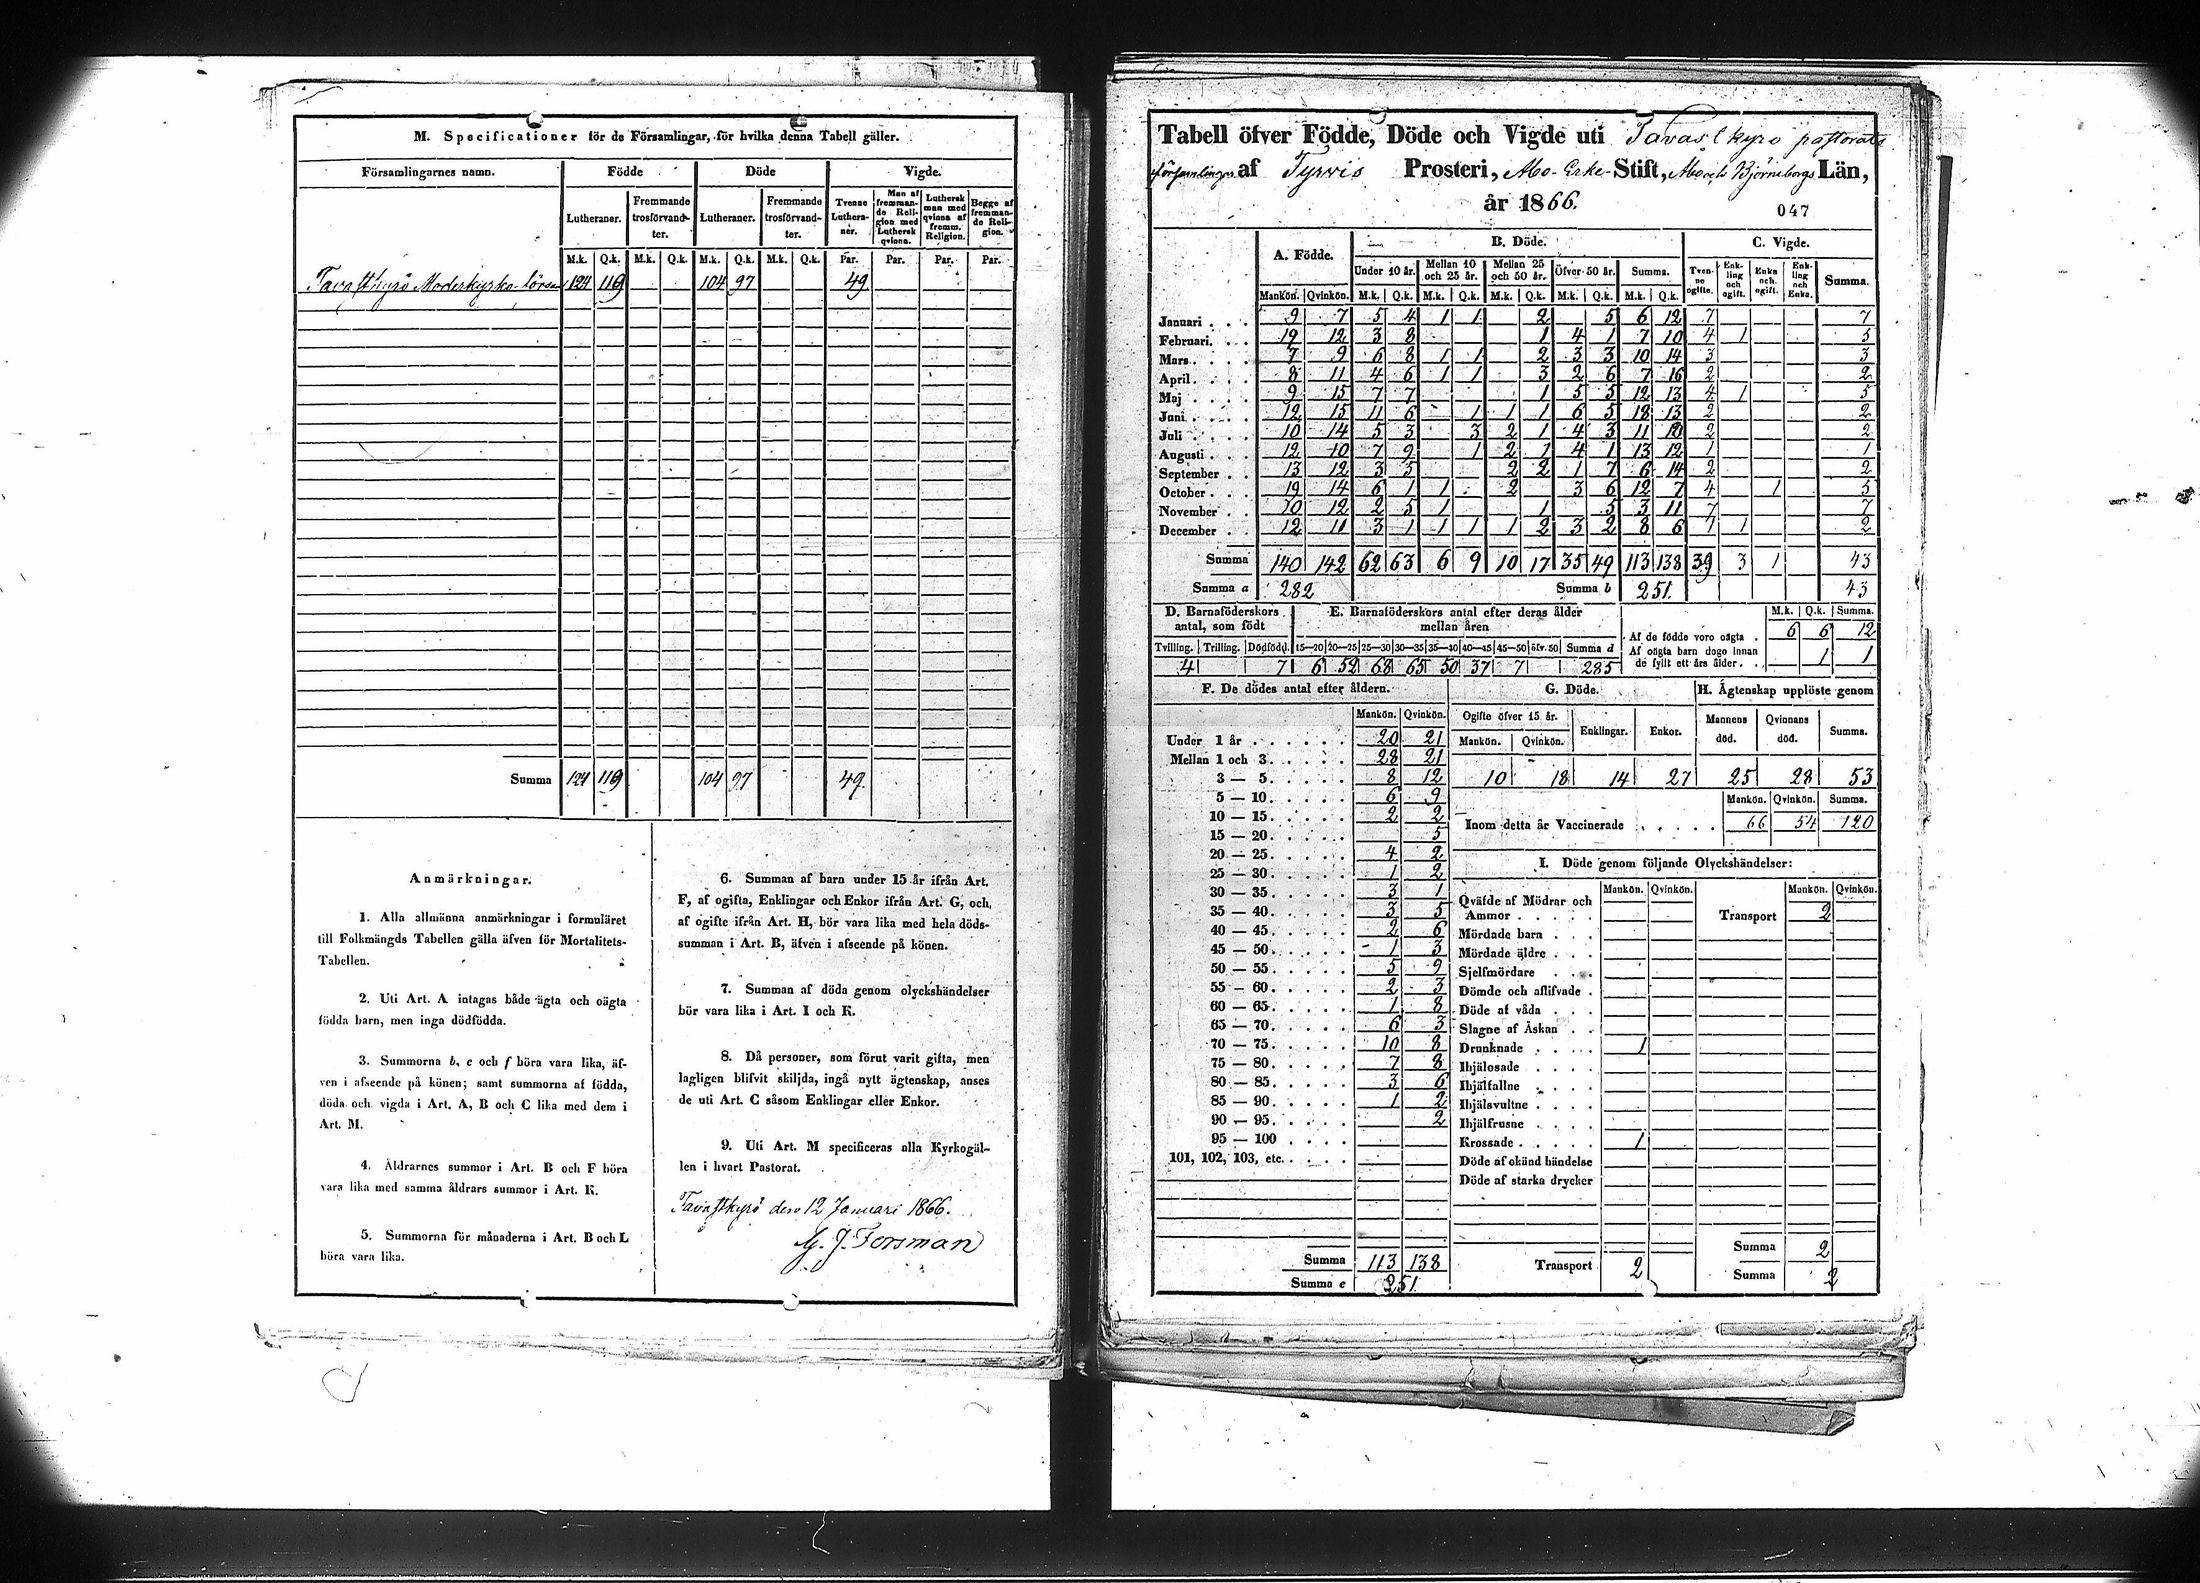 M. Specificationer för de Församlingar, för hvilka denna Tabell gäller.
Församlingarnes namn. Födde Döde Vigde.
Lutheraner. Fremmande trosförvandter. Lutheraner. Fremmande trosförvandter. Tvenne Lutheraner. Man af fremmande Religion med Luthersk qvinna. Luthersk man med qvinna af fremm. Religion. Begge af fremmande Religion.
M.k. Q.k. M.k. Q.k. M.k. Q.k. M.k. Q.k. Par. Par. Par. Par.
Tavastkyrö Moderkyrko-förs 124 119 104 97 49
Summa 124 119 104 97 49.
Anmärkningar.
1. Alla allmänna anmärkningar i formuläret
till Folkmängds Tabellen gälla äfven för Mortalitets-
Tabellen.
2. Uti Art. A intagas både ägta och oägta
födda barn, men inga dödfödda.
3. Summorna b, e och f böra vara lika, äf-
ven i afseende på könen; samt summorna af födda,
döda och vigda i Art. A, B och C lika med dem i
Art. M.
4. Åldrarnes summor i Art. B och F böra
vara lika med samma åldrars summor i Art. K.
5. Summorna för månaderna i Art. B och L
böra vara lika.
6. Summan af barn under 15 år ifrån Art.
F, af ogifta, Enklingar och Enkor ifrån Art. G, och
af ogifte ifrån Art. H, bör vara lika med hela döds-
summan i Art. B, äfven i afseende på könen.
7. Summan af döda genom olyckshändelser
bör vara lika i Art. I och K.
8. Då personer, som förut varit gifta, men
lagligen blifvit skiljda, ingå nytt ägtenskap, anses
de uti Art. C såsom Enklingar eller Enkor.
9. Uti Art. M specificeras alla Kyrkogäl-
len i hvart Pastorat.
Tavastkyrö den 12 Januari 1866.
G. J. Forsman
Tabell öfver Födde, Döde och Vigde uti Tavastkyro pastorats
församlingar af Tyrvis Prosteri, Abo-Erke-Stift, Abo och Björneborgs Län,
år 1866.
047
A. Födde. B. Döde. C. Vigde.
Under 10 år. Mellan 10 och 25 år. Mellan 25 och 50 år. Öfver 50 år. Summa. Tvenne ogifte. Enkling och ogift. Enka och ogift. Enkling och Enka. Summa.
Mankön. Qvinkön. M.k. Q.k. M.k. Q.k. M.k. Q.k. M.k. Q.k. M.k. Q.k.
Januari . . . 9 7 5 4 1 1 2 5 6 12 7 7
Februari. . . 19 12 3 8 1 4 1 7 10 4 1 5
Mars . . . 7 9 6 8 1 1 2 3 3 10 14 3 3
April . . . 8 11 4 6 1 1 3 2 6 7 16 2 2
Maj . . . 9 15 7 7 1 5 5 12 13 4 1 5
Juni . . . 12 15 11 6 1 1 1 6 5 18 13 2 2
Juli . . . 10 14 5 3 3 2 1 4 3 11 10 2 2
Augusti . . . 12 10 7 9 1 2 1 4 1 13 12 1 1
September . . 13 12 3 5 2 2 1 7 6 14 2 2
October . . . 19 14 6 1 1 2 3 6 12 7 4 1 5
November . . 10 12 2 5 1 1 5 3 11 7 7
December . . 12 11 3 1 1 1 1 2 3 2 8 6 1 2
Summa 140 142 62 63 6 9 10 17 35 49 113 138 39 3 1 43
Summa a 282 Summa b 251. 43
D. Barnaföderskors antal, som födt
Tvilling. Trilling. Dödfödd.
4 7
E. Barnaföderskors antal efter deras ålder
mellan åren
15—20 20—25 25—30 30—35 35—40 40—45 45—50 öfv. 50 Summa d
6 52 68 65 50 37 7 285
M.k. Q.k. Summa.
Af de födde voro oägta . 6 6 12
Af oägta barn dogo innan
de fyllt ett års ålder . . 1 1
F. De dödes antal efter åldern.
Mankön. Qvinkön.
Under 1 år . . . . . . 20 21
Mellan 1 och 3 . . . . . 28 21
3 — 5. . . . . 8 12
5 — 10. . . . . 6 9
10 — 15. . . . . 2 2
15 — 20. . . . . 5
20 — 25. . . . . 4 2
25 — 30. . . . . 1 2
30 — 35. . . . . 3 1
35 — 40. . . . . 3 5
40 — 45. . . . . 2 6
45 — 50. . . . . 1 3
50 — 55. . . . . 5 9
55 — 60. . . . . 2 3
60 — 65. . . . . 1 8
65 — 70. . . . . 6 3
70 — 75. . . . . 10 8
75 — 80. . . . . 7 8
80 — 85. . . . . 3 6
85 — 90. . . . . 1 2
90 — 95. . . . . 2
95 — 100 . . . .
101, 102, 103, etc. . . . .
Summa 113 138
Summa e 251.
G. Döde.
Ogifte öfver 15 år. Enklingar. Enkor.
Mankön. Qvinkön.
10 18 14 27
H. Ägtenskap upplöste genom
Mannens död. Qvinnans död. Summa.
25 28 53
Mankön. Qvinkön. Summa.
Inom detta år Vaccinerade . . . . . 66 54 120
I. Döde genom följande Olyckshändelser:
Mankön. Qvinkön. Mankön. Qvinkön.
Qväfde af Mödrar och
Ammor . . . . .
Transport 2
Mördade barn . . .
Mördade äldre . . .
Sjelfmördare . . .
Dömde och aflifvade .
Döde af våda . . .
Slagne af Åskan . .
Drunknade . . . . . 1
Ihjälosade . . . .
Ihjälfallne . . . .
Ihjälsvultne . . . .
Ihjälfrusne . . . .
Krossade . . . . . 1
Döde af okänd händelse
Döde af starka drycker
Transport 2
Summa 2
Summa 2